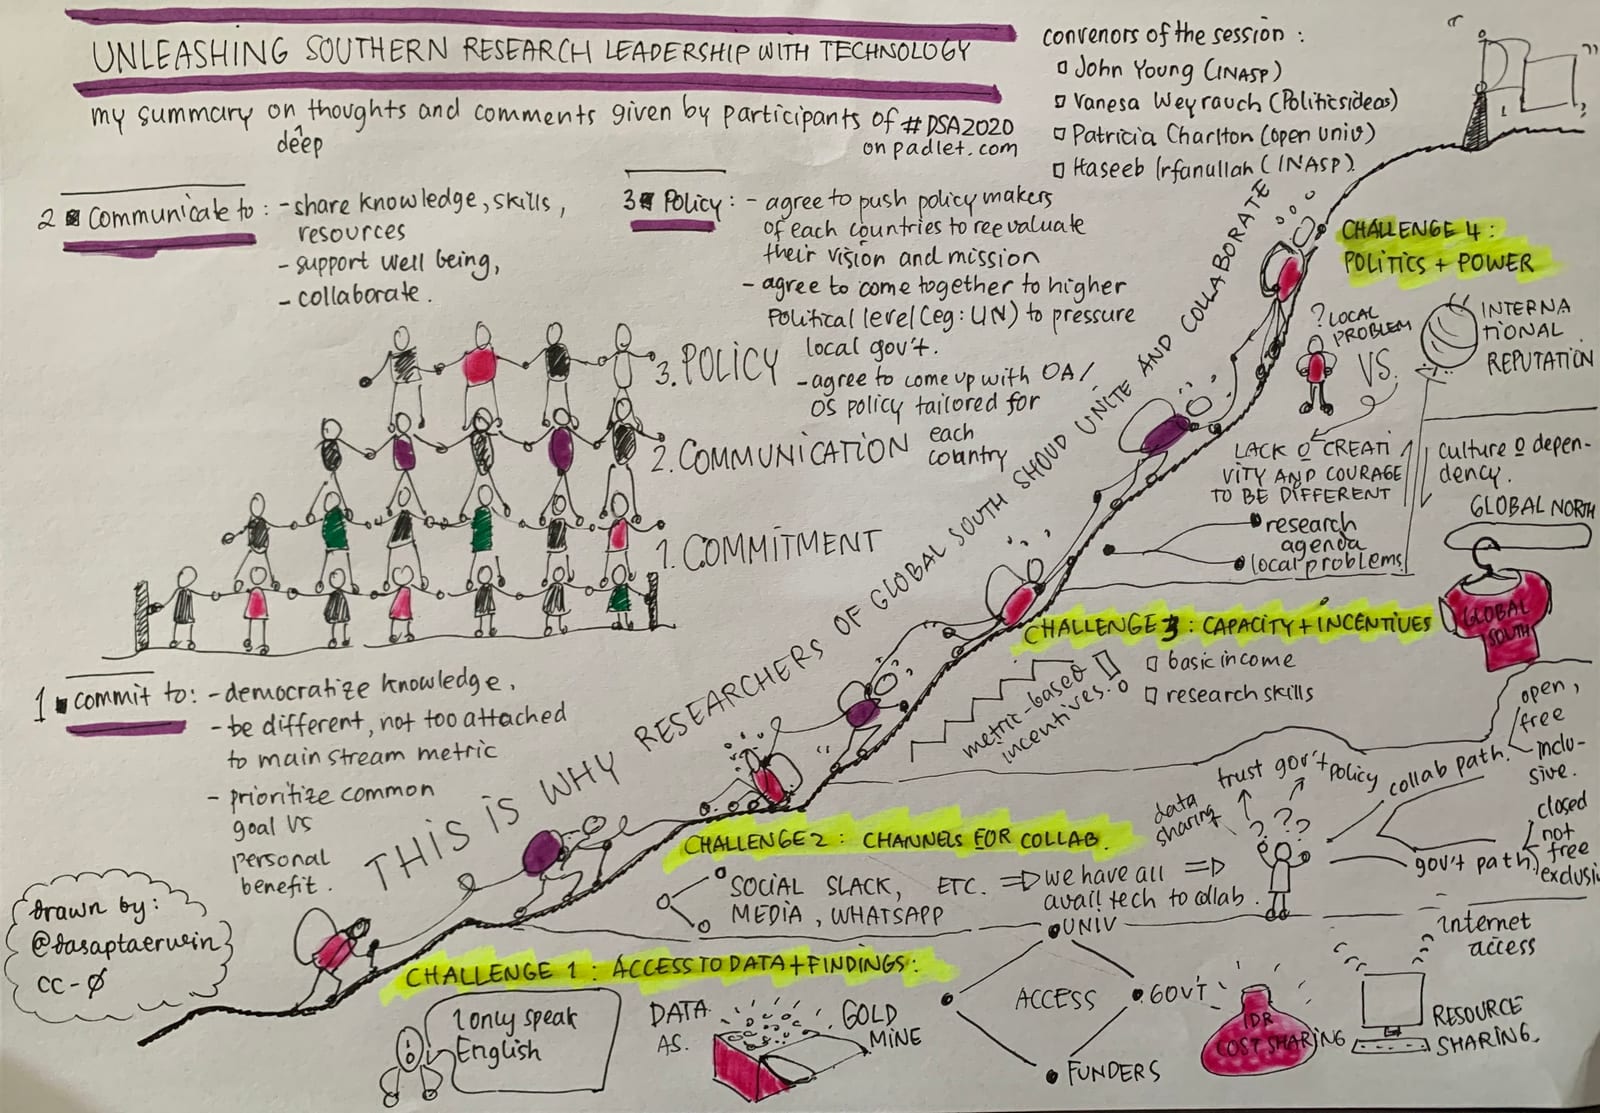 UNLEASHING SOUTHERN RESEARCH LEADERSHIP WITH TECHNOLOGY
my summary on thoughts and comments given by participants of #DSA2020
deep
on padlet.com
convenors of the session :
John Young (INASP)
Vanesa Weyrauch (Politicsideas)
Patricia Charlton (open univ)
Haseeb Irfanullah (INASP).
2 Communicate to : - share knowledge, skills,
resources
- support well being,
- collaborate.
3 Policy : - agree to push policy makers
of each countries to reevaluate
their vision and mission
- agree to come together to higher
Political level (eg: UN) to pressure
local gov't.
- agree to come up with OA/
OS policy tailored for
each
country
3. POLICY
2. COMMUNICATION
1. COMMITMENT
1 commit to: - democratize knowledge,
- be different, not too attached
to main stream metric
- prioritize common
goal vs
personal
benefit.
THIS IS WHY RESEARCHERS OF GLOBAL SOUTH SHOULD UNITE AND COLLABORATE
drawn by:
@dasaptaerwin
CC-Ø
CHALLENGE 4 :
POLITICS + POWER
? LOCAL
PROBLEM
VS.
INTERNA
TIONAL
REPUTATION
LACK O CREATI
VITY AND COURAGE
TO BE DIFFERENT
culture o depen-
dency.
research
agenda
local problems
GLOBAL NORTH
GLOBAL
SOUTH
CHALLENGE 3 : CAPACITY + INCENTIVES
metric-based
incentives.
basic income
research skills
CHALLENGE 2 : CHANNELS FOR COLLAB.
SOCIAL SLACK, ETC.
MEDIA, WHATSAPP
we have all
avail tech to collab.
data
sharing
trust
gov't
policy
? ? ?
collab path.
open,
free
inclu-
sive.
gov't path.
closed
not
free
exclusi
CHALLENGE 1 : ACCESS TO DATA + FINDINGS :
I only speak
English
DATA
AS.
GOLD
MINE
UNIV
ACCESS
GOVT
FUNDERS
IDR
COST SHARING
internet
access
RESOURCE
SHARING.